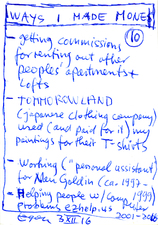 WAYS I MADE MONEY
10
- getting commissions
for renting out other
peoples' apartments &
lofts
- TOMMOROWLAND
(japanese clothing company)
used (and paid for it) my
paintings for their T-shirts
- Working ("personal assistant")
for Nan Goldin (ca. 1997-
1999)
- Helping people w/comp.
problems ezhelp.us
2001-2006
3 XII 16